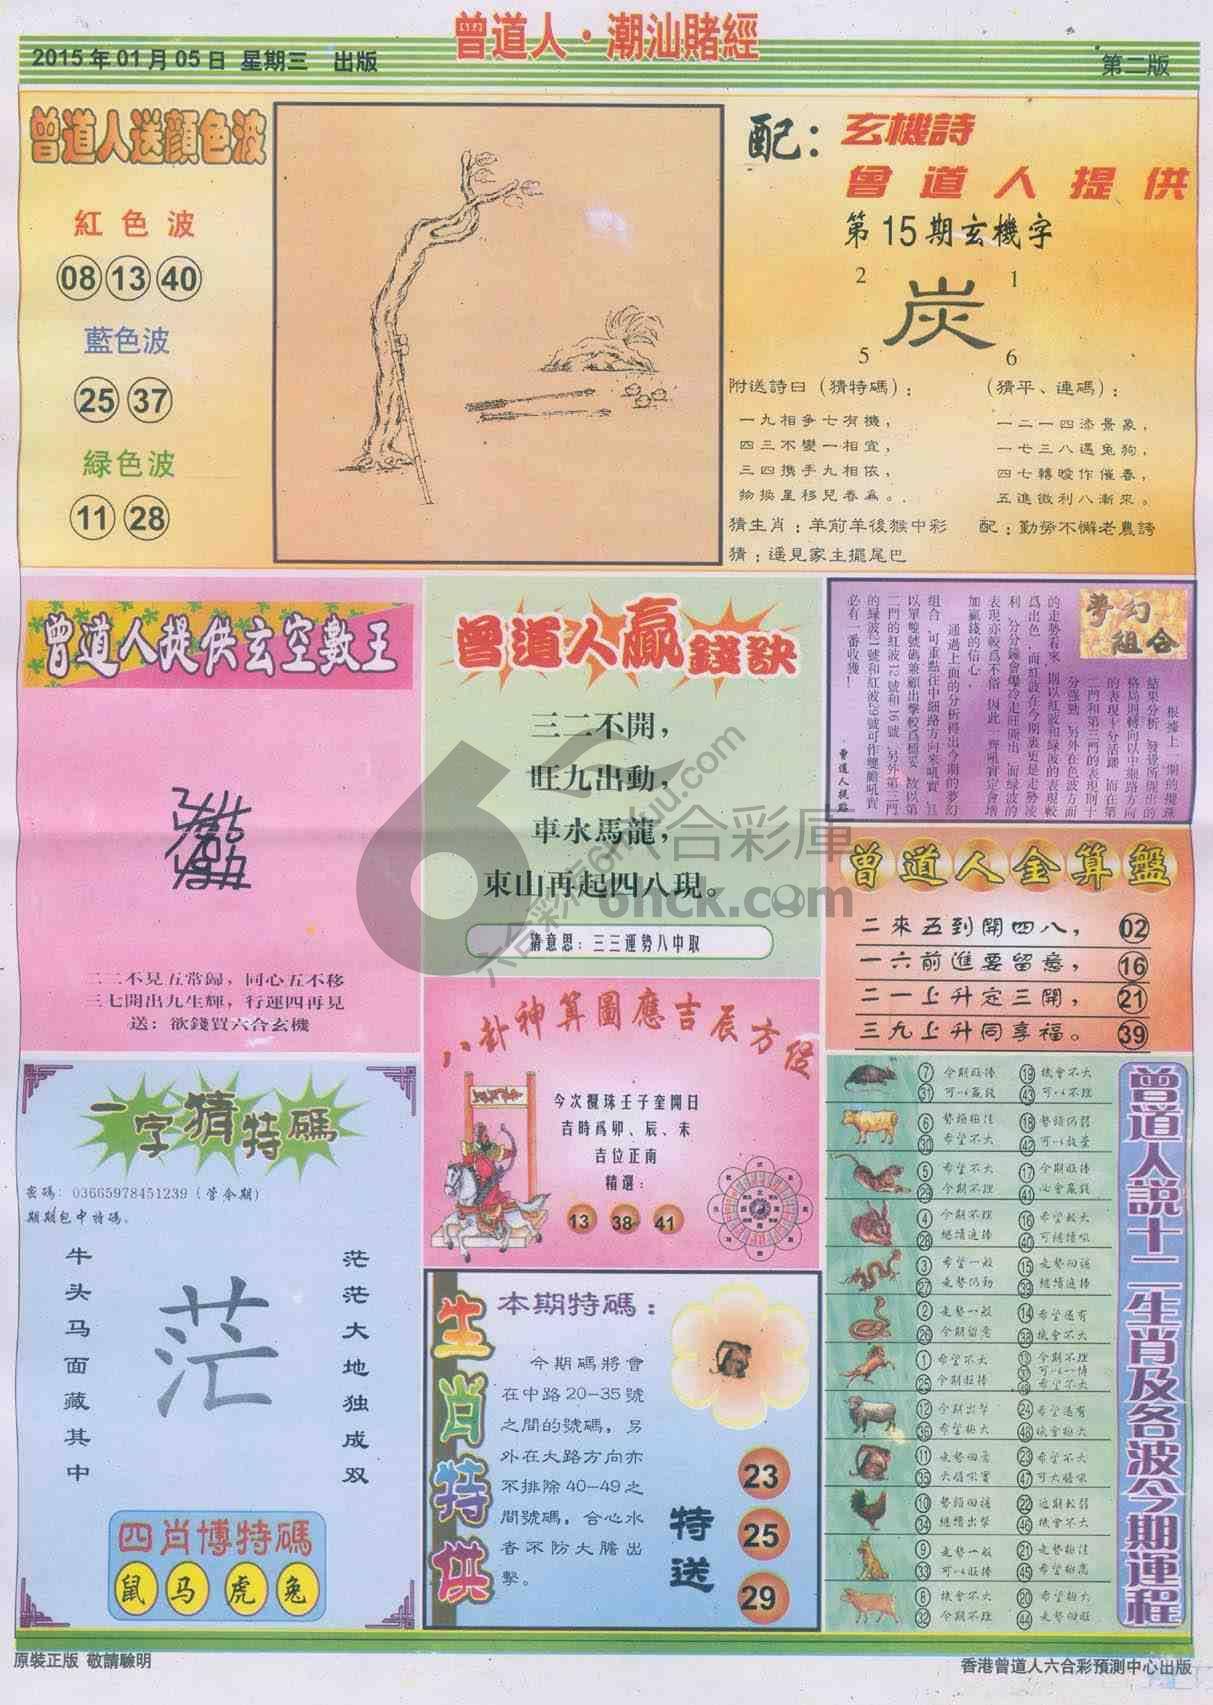 曾道人·潮汕賭經
2015年01月05日 星期三 出版
第二版
曾道人送顔色波
紅色波
08 13 40
藍色波
25 37
緑色波
11 28
配：玄機詩
曾道人提供
第15期玄機字
2 1
炭
5 6
附送詩曰（猜特碼）：
一九相爭七有機，
四三不變一相宜，
三四携手九相依，
物換星移兒春為。
猜生肖：羊前羊後猴中彩
猜：遥見家主擺尾巴
（猜平、連碼）：
一二一四添景象，
一七三八遇兔狗，
四七轉暧作催春，
五進微利八漸來。
配：勤勞不懈老農誇
曾道人提供玄空數王
二二不見五常歸，同心五不移
三七開出九生輝，行運四再見
送：欲錢買六合玄機
曾道人贏錢訣
三二不開，
旺九出動，
車水馬龍，
東山再起四八現。
猜意思：三三運勢八中取
夢幻組合
根據上一期的攪珠
結果分析，發覺所開出的
格局則轉向以中細路方向
的表現十分活躍，而在第
二門和第三門的表現則十
分强勁，另外在色波方面
的走勢看來，則以紅波和緑波的表現較
爲出色，而紅波在今期裏更是走勢凌
利，分分鐘會爆冷走旺開出，而緑波的
表現亦較爲不俗，因此一齊吼實定會增
加贏錢的信心。
通過上面的分析得出今期的夢幻
組合，可重點在中細路方向來吼實，且
以單雙號碼兼顧出擊較爲穩妥，故以第
二門的紅波12號和16號，另外第三門
的緑波21號和紅波29號可作雙膽吼實，
必有一番收獲！
曾道人提路
曾道人金算盤
二來五到開四八， 02
一六前進要留意， 16
二一上升定三開， 21
三九上升同享福。 39
八卦神算圖應吉辰方位
今次攪珠壬子奎開日
吉時爲卯、辰、未
吉位正南
精選：
13 38 41
一字猜特碼
密碼：03665978451239（管今期）
期期包中特碼。
牛头马面藏其中
茫
茫茫大地独成双
四肖博特碼
鼠 马 虎 兔
生肖特供
本期特碼：
今期碼將會
在中路20-35號
之間的號碼，另
外在大路方向亦
不排除40-49之
間號碼，合心水
者不防大膽出
擊。
特送
23
25
29
曾道人説十二生肖及各波今期運程
7 今期旺捧 19 機會不大
31 可以贏錢 43 可以不理
6 18
30 希望不大 42
5 希望不大 17 今期旺捧
29 今期不理 41 必會贏錢
4 今期不理 16 希望較大
28 繼續追捧 40 可繼續吼
3 希望一般 15 走勢回落
27 走勢仍勁 39 繼續追捧
2 走勢一般 14 希望還有
26 今期留意 38 機會不大
1 希望不大 13 今期不理
25 今期旺捧 37 可以一博
49 希望不大
12 今期出擊 24 希望還有
36 希望極大 48 機會極大
11 23 希望不大
35 大膽吼實 47 可大膽吼
10 勢頭回落 22 近期較弱
34 繼續出擊 46 機會不大
9 走勢一般 21
33 可以旺捧 45
8 機會不大 20 希望極大
32 今期不理 44 走勢回旺
六合彩庫
6hck.com
原裝正版 敬請驗明
香港曾道人六合彩預測中心出版